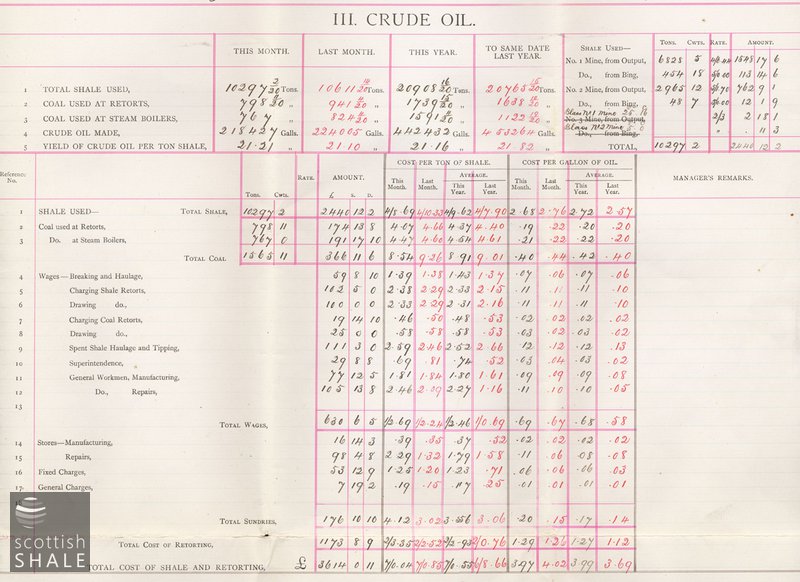 III. CRUDE OIL.
THIS MONTH. LAST MONTH. THIS YEAR. TO SAME DATE LAST YEAR.
1 TOTAL SHALE USED, 10297 2/20 Tons. 10611 /20 Tons. 20908 16/20 Tons. 20765 15/20 Tons.
2 COAL USED AT RETORTS, 798 11/20 „ 941 /20 „ 1739 /20 „ 1638 /20 „
3 COAL USED AT STEAM BOILERS, 767 „ 824 /20 „ 1591 /20 „ 1122 /20 „
4 CRUDE OIL MADE, 218427 Galls. 224005 Galls. 442432 Galls. 453264 Galls.
5 YIELD OF CRUDE OIL PER TON SHALE, 21.21 „ 21.10 „ 21.16 „ 21.82 „
SHALE USED— TONS. CWTS. RATE. AMOUNT.
No. 1 Mine, from Output, 6828 5 1548 17 6
Do., from Bing, 454 18 5/0.00 113 14 6
No. 2 Mine, from Output, 2965 12 762 9 1
Do., from Bing, 48 7 5/0.00 12 1 9
No. 3 Mine, from Output, 2/3 2 18 1
Do., from Bing, „ . 11 3
TOTAL, 10297 2 2440 12 2
COST PER TON OF SHALE. COST PER GALLON OF OIL.
Reference No. RATE. AMOUNT. This Month. Last Month. AVERAGE. This Year. Last Year. This Month. Last Month. AVERAGE. This Year. Last Year. MANAGER'S REMARKS.
Tons. Cwts. £ S. D.
1 SHALE USED— TOTAL SHALE, 10297 2 2440 12 2 4/8.69 4/10.33 4/9.62 4/7.90 2.68 2.76 2.72 2.57
2 Coal used at Retorts, 798 11 174 13 8 4.07 4.66 4.37 4.40 .19 .22 .20 .20
3 Do. at Steam Boilers, 767 0 191 17 10 4.47 4.60 4.54 4.61 .21 .22 .22 .20
TOTAL COAL 1565 11 366 11 6 8.54 9.26 8.91 9.01 .40 .44 .42 .40
4 Wages—Breaking and Haulage, 59 8 10 1.39 1.38 1.43 1.37 .07 .06 .07 .06
5 Charging Shale Retorts, 102 5 0 2.38 2.29 2.33 2.15 .11 .11 .11 .10
6 Drawing do., 100 0 0 2.33 2.29 2.31 2.16 .11 .11 .11 .10
7 Charging Coal Retorts, 19 14 10 .46 .50 .48 .53 .02 .02 .02 .02
8 Drawing do., 25 0 0 .58 .58 .58 .53 .03 .02 .03 .02
9 Spent Shale Haulage and Tipping, 111 3 0 2.59 2.46 2.52 2.66 .12 .12 .12 .13
10 Superintendence, 29 8 8 .69 .81 .74 .52 .03 .04 .03 .02
11 General Workmen, Manufacturing, 77 12 5 1.81 1.84 1.80 1.61 .09 .09 .09 .08
12 Do., Repairs, 105 13 8 2.46 2.09 2.27 1.16 .11 .10 .10 .05
13
TOTAL WAGES, 630 6 5 1/2.69 1/2.24 1/2.46 1/0.69 .69 .67 .68 .58
14 Stores—Manufacturing, 16 14 3 .39 .35 .37 .52 .02 .02 .02 .02
15 Repairs, 98 4 8 2.29 1.32 1.79 1.58 .11 .06 .08 .08
16 Fixed Charges, 53 12 9 1.25 1.20 1.23 .71 .06 .06 .06 .03
17 General Charges, 7 19 2 .19 .15 .17 .25 .01 .01 .01 .01
TOTAL SUNDRIES, 176 10 10 4.12 3.02 3.56 3.06 .20 .15 .17 .14
TOTAL COST OF RETORTING, 1173 8 9 2/3.35 2/2.52 2/2.93 2/0.76 1.29 1.26 1.27 1.12
TOTAL COST OF SHALE AND RETORTING, £ 3614 0 11 7/0.04 7/0.85 7/0.55 6/8.66 3.97 4.02 3.99 3.69
scottish
SHALE